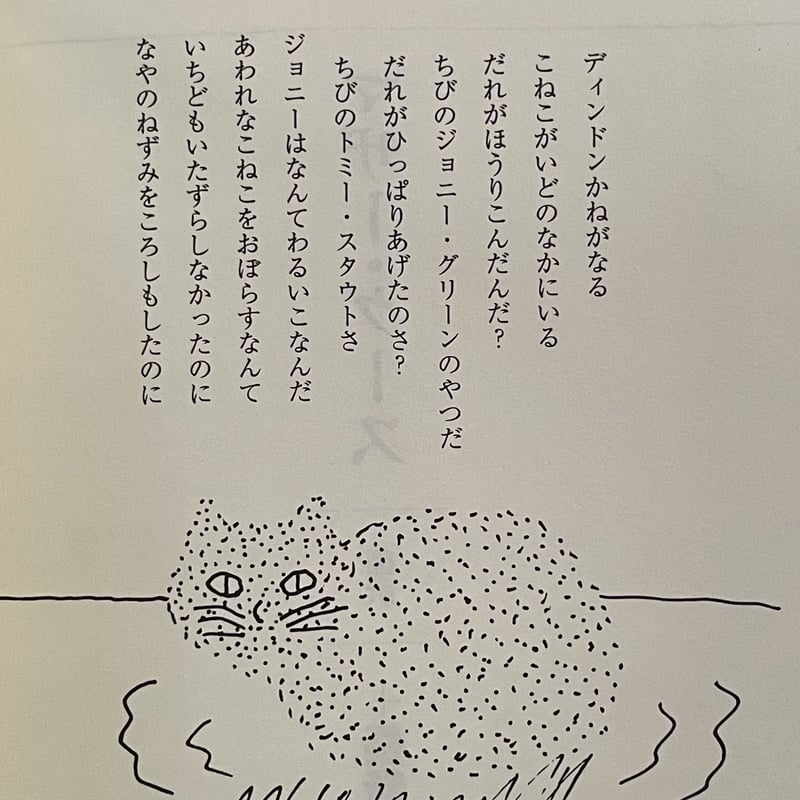 ディンドンかねがなる
こねこがいどのなかにいる
だれがほうりこんだんだ?
ちびのジョニー・グリーンのやつだ
だれがひっぱりあげたのさ?
ちびのトミー・スタウトさ
ジョニーはなんてわるいこなんだ
あわれなこねこをおぼらすなんて
いちどもいたずらしなかったのに
なやのねずみをころしもしたのに